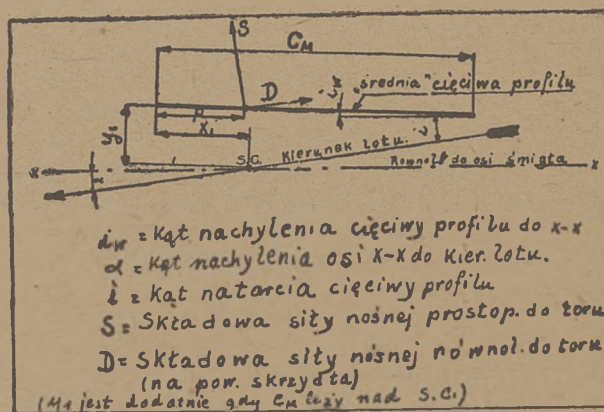 S
C_M
D
i_w
"średnia" cięciwa profilu
p
X₁
Kierunek lotu.
S.C.
Równol. do osi śmigła
x
x
i_w = Kąt nachylenia cięciwy profilu do x-x
α = Kąt nachylenia osi X-X do kier. lotu.
i = Kąt natarcia cięciwy profilu
S = Składowa siły nośnej prostop. do toru
D = Składowa siły nośnej równol. do toru
(na pow. skrzydła)
(M₁ jest dodatnie gdy C_M leży nad S.C.)